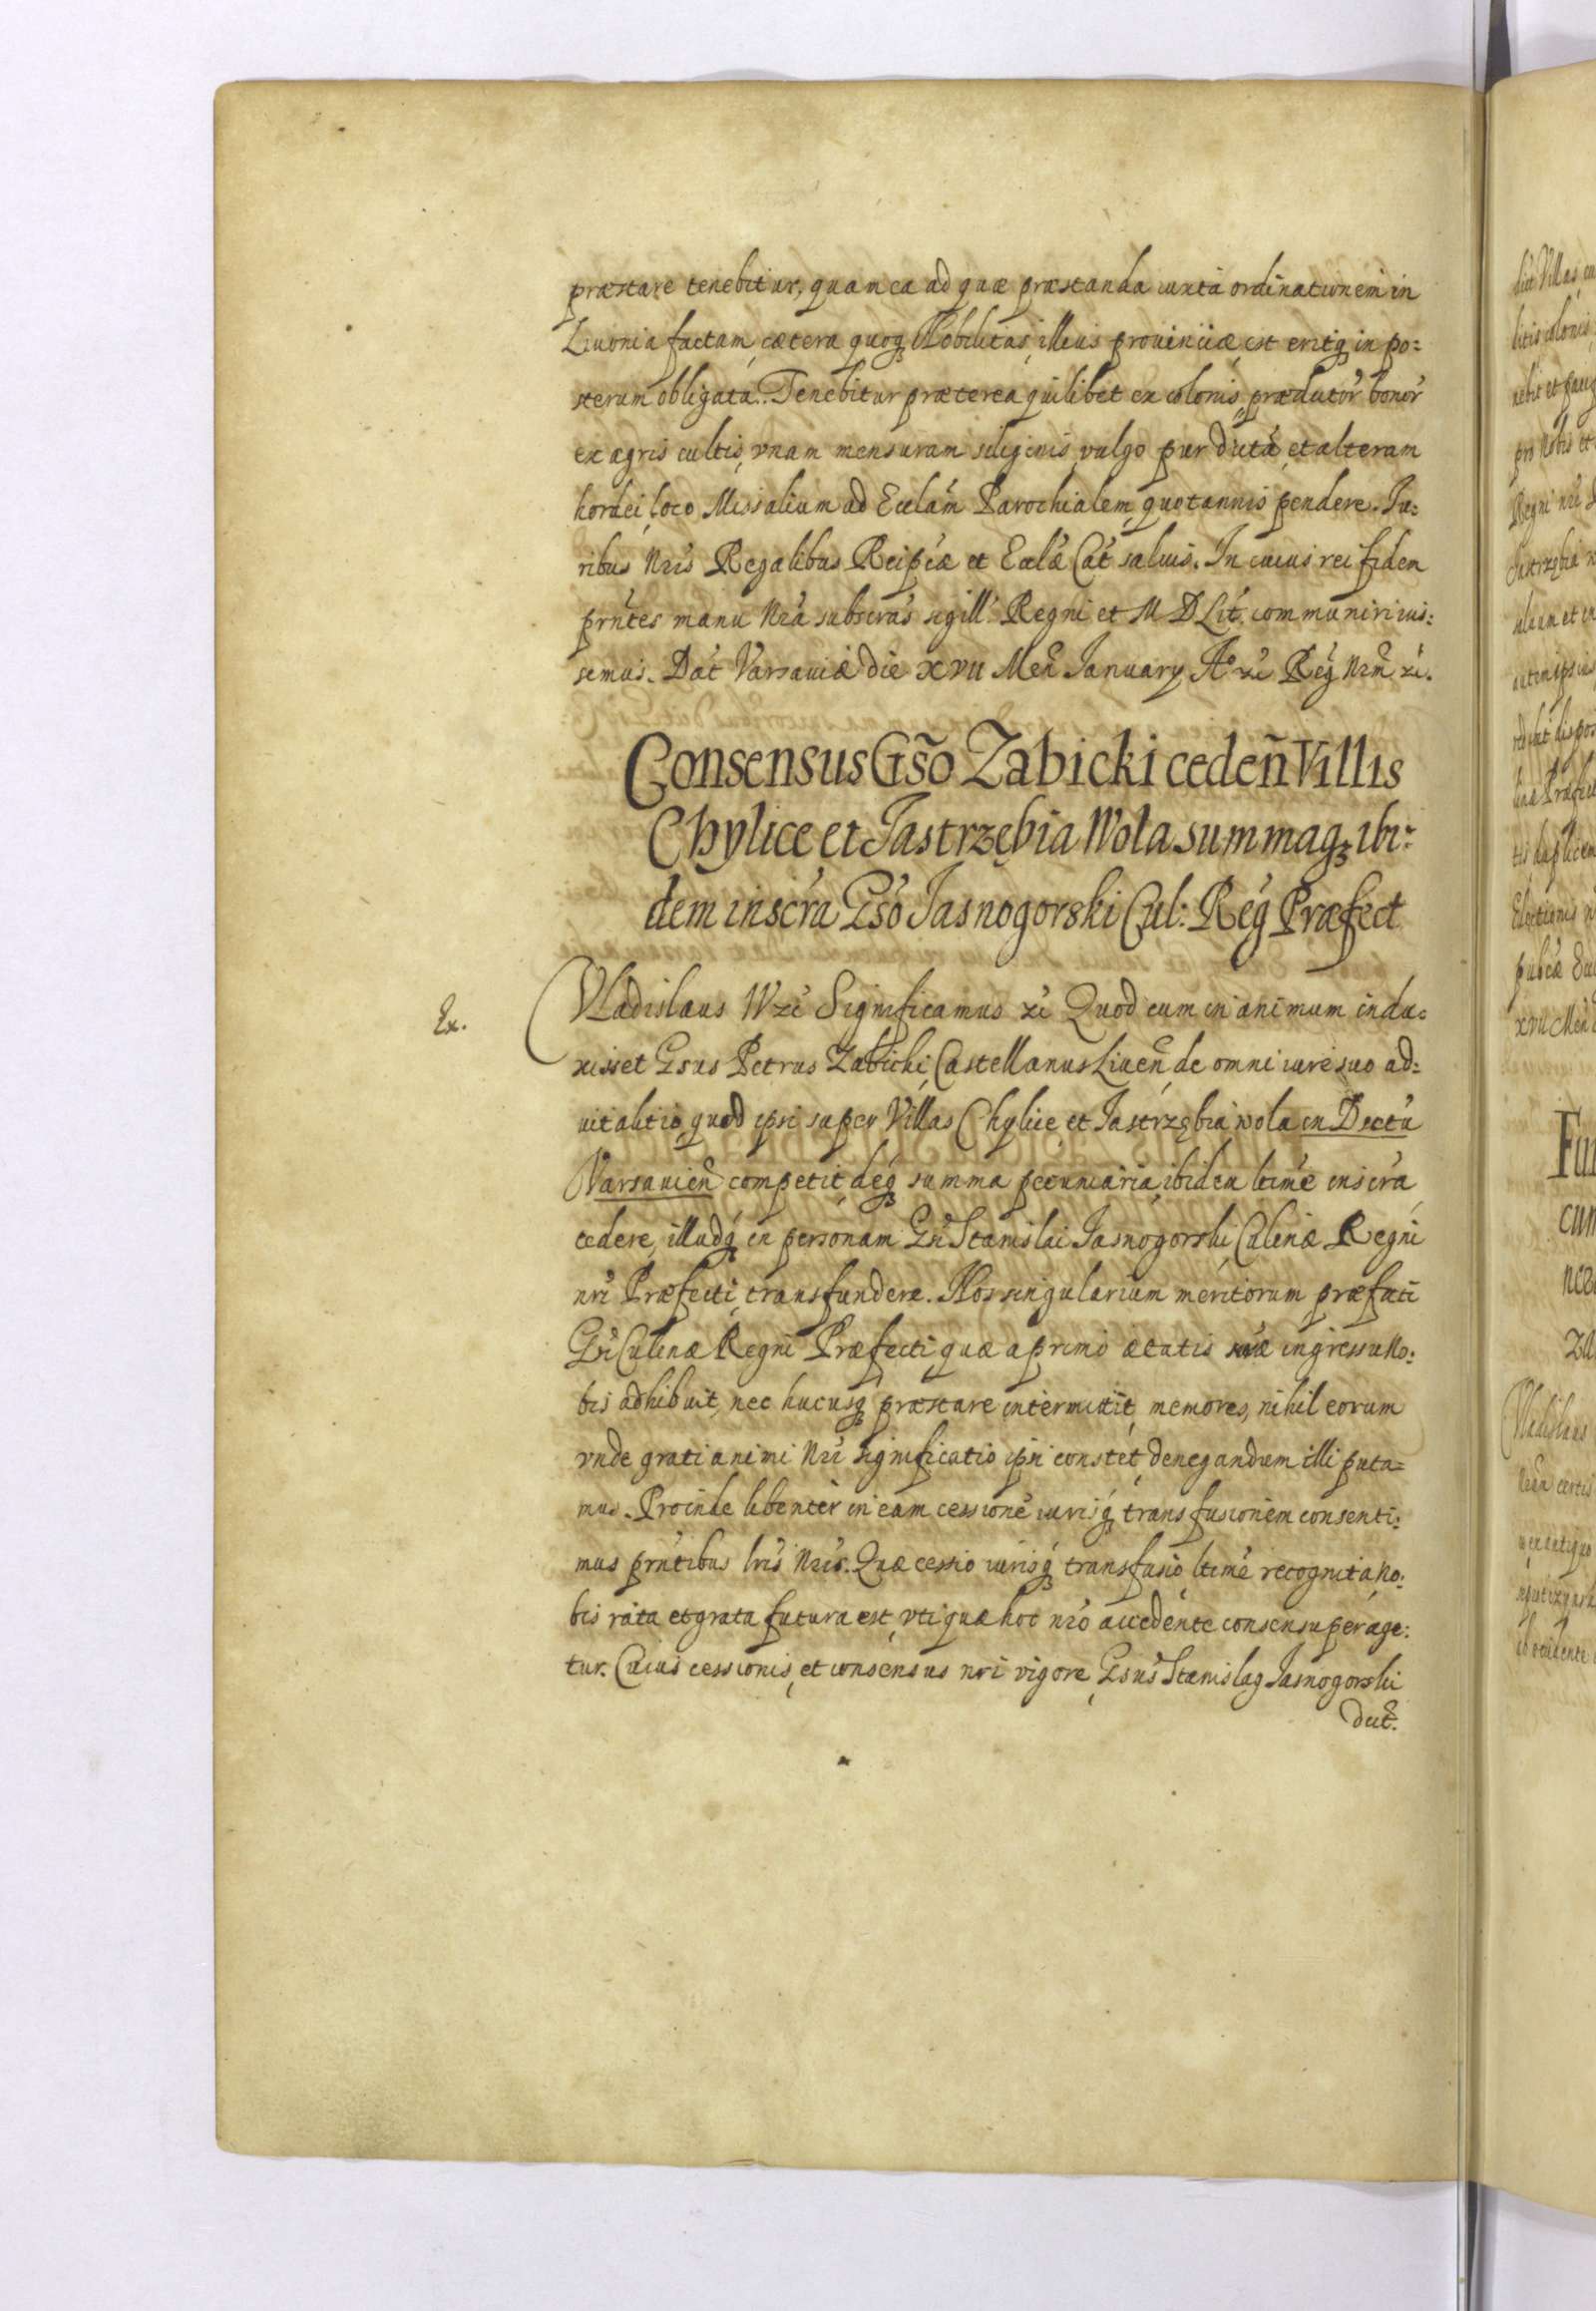 præstare tenebitur, quam ea ad quæ præstanda iuxta ordinationem in
Livonia factam, cætera quoq Nobilitas illius provinciæ est eritq in po:
sterum obligata. Tenebitur præterea quilibet ex colonis prædictor bonor
ex agris cultis, vnam mensuram siliginis vulgo pur dicta, et alteram
hordei, loco Missalium ad Ecclam Parochialem, quotannis pendere. Iu:
ribus Nris Regalibus Reipcæ et Ecclæ Cat salvis. In cuius rei fidem
prntes manu Nra subscras sigill Regni et M D Lit communiri ius:
simus. Dat Varsaviæ die xvii Men January Ao zc Reg Nrn zc.
Consensus Gso Zabicki ceden Villis
Chylice et Jastrzębia Wola summaq ibi:
dem inscra Gso Jasnogorski Cul: Reg Præfect
Ex.
Vladislaus IV zc Significamus zc Quod cum in animum indu:
xisset Gsus Petrus Zabicki, Castellanus Liven, de omni iure suo ad:
vitalitio, quod ipsi super Villas Chylice et Jastrzębia wola in Dcctu
Varsavien competit, deq summa pecuniaria ibidem ltime inscra
cedere, illudq in personam Gsi Stanislai Jasnogorski Culinæ Regni
nri Præfecti, transfundere. Nos singularium meritorum præfati
Gsi Culinæ Regni Præfecti quæ a primo ætatis suæ ingressu No:
bis adhibuit, nec hucusq præstare intermittit, memores, nihil eorum
vnde grati animi Nri significatio ipsi constet, denegandum illi puta=
mus. Proinde libenter in eam cessione iurisq transfusionem consenti:
mus prntibus lris Nris. Quæ cessio iurisq transfusio ltime recognita, No:
bis rata et grata futura est, vti quæ hoc nro accedente consensu perage:
tur. Cuius cessionis et consensus nri vigore, Gsus Stanislaq Jasnogorski
dict.